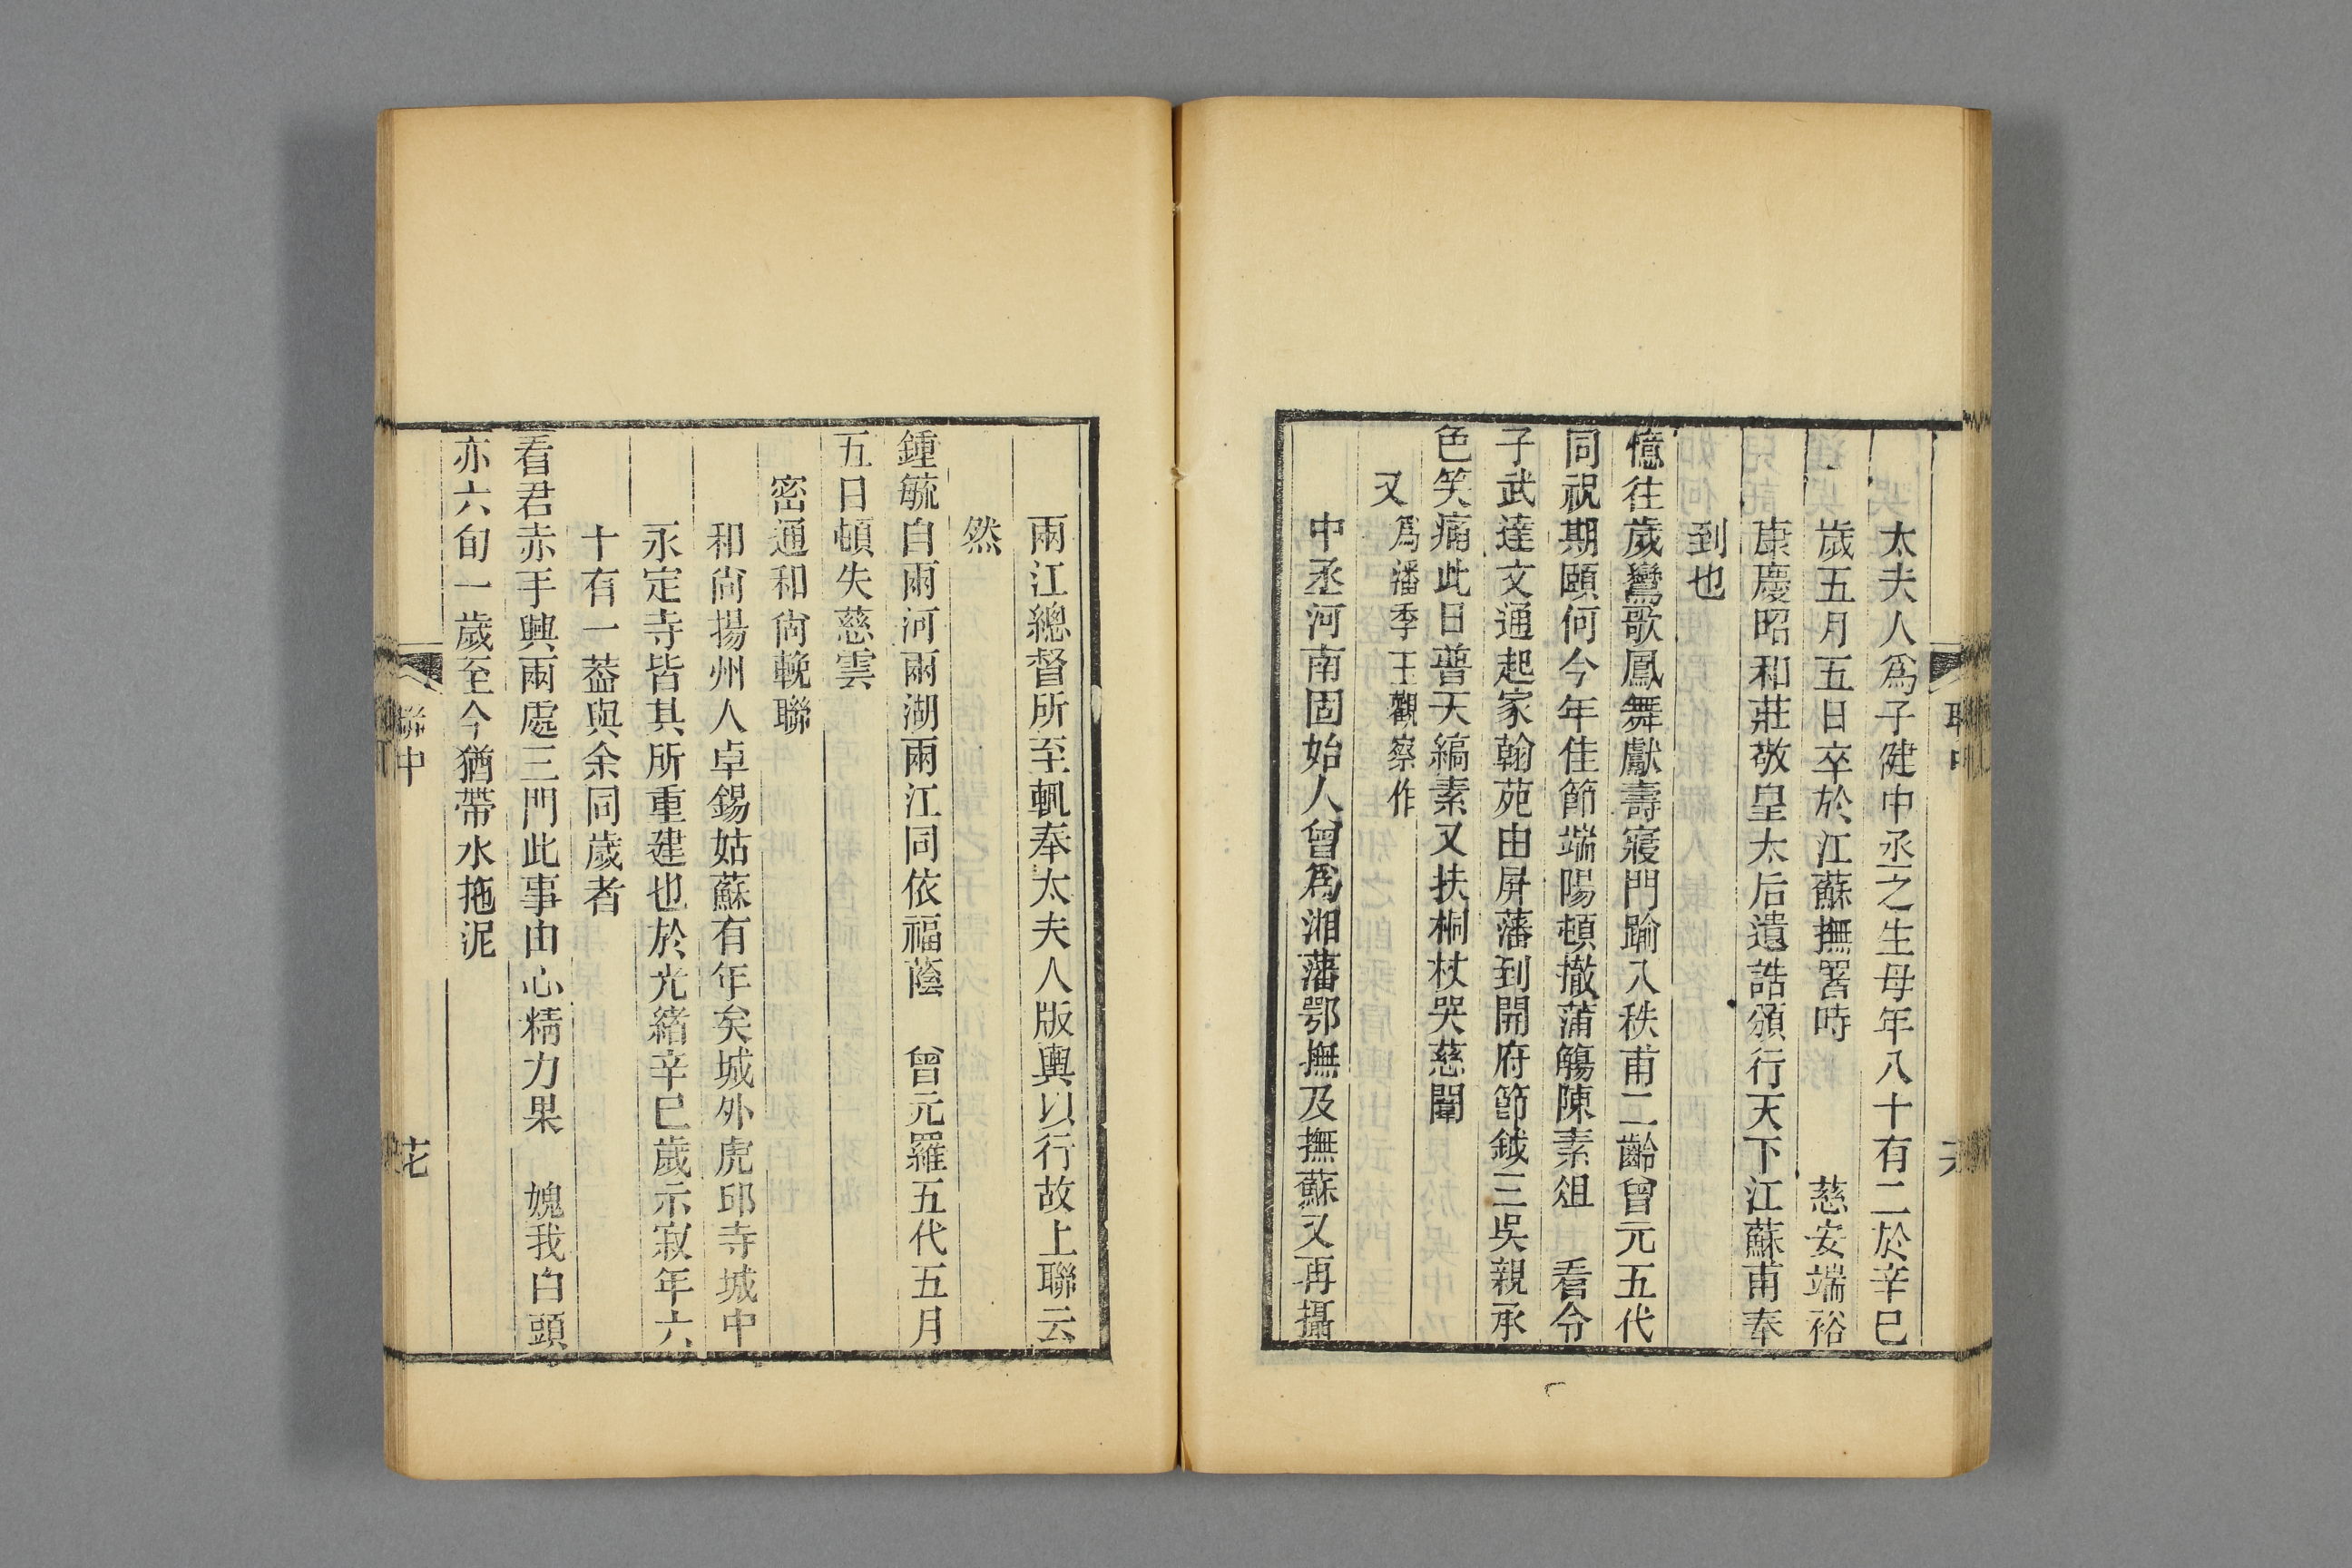 太夫人爲子健中丞之生母年八十有二於辛巳
歲五月五日卒於江蘇撫署時　慈安端裕
康慶昭和莊敬皇太后遺誥頒行天下江蘇甫奉
到也
億往歲鸞歌鳳舞獻壽寢門踰八秩甫二齡曾元五代
同祝期頤何今年佳節端陽頓撤蒲觴陳素俎　看令
子武達文通起家翰苑由屏藩到開府節鉞三吳親承
色笑痛此日普天縞素又扶桐杖哭慈闈
又爲潘季玉觀察作
中丞河南固始人曾爲湘藩鄂撫及撫蘇又再攝
兩江總督所至輒奉太夫人版輿以行故上聯云
然
鍾毓自兩河兩湖兩江同依福蔭　曾元羅五代五月
五日頓失慈雲
密通和尙輓聯
和尙揚州人卓錫姑蘇有年矣城外虎邱寺城中
永定寺皆其所重建也於光緒辛巳歲示寂年六
十有一葢與余同歲者
看君赤手興兩處三門此事由心精力果　媿我白頭
亦六旬一歲至今猶帶水拖泥
聯中